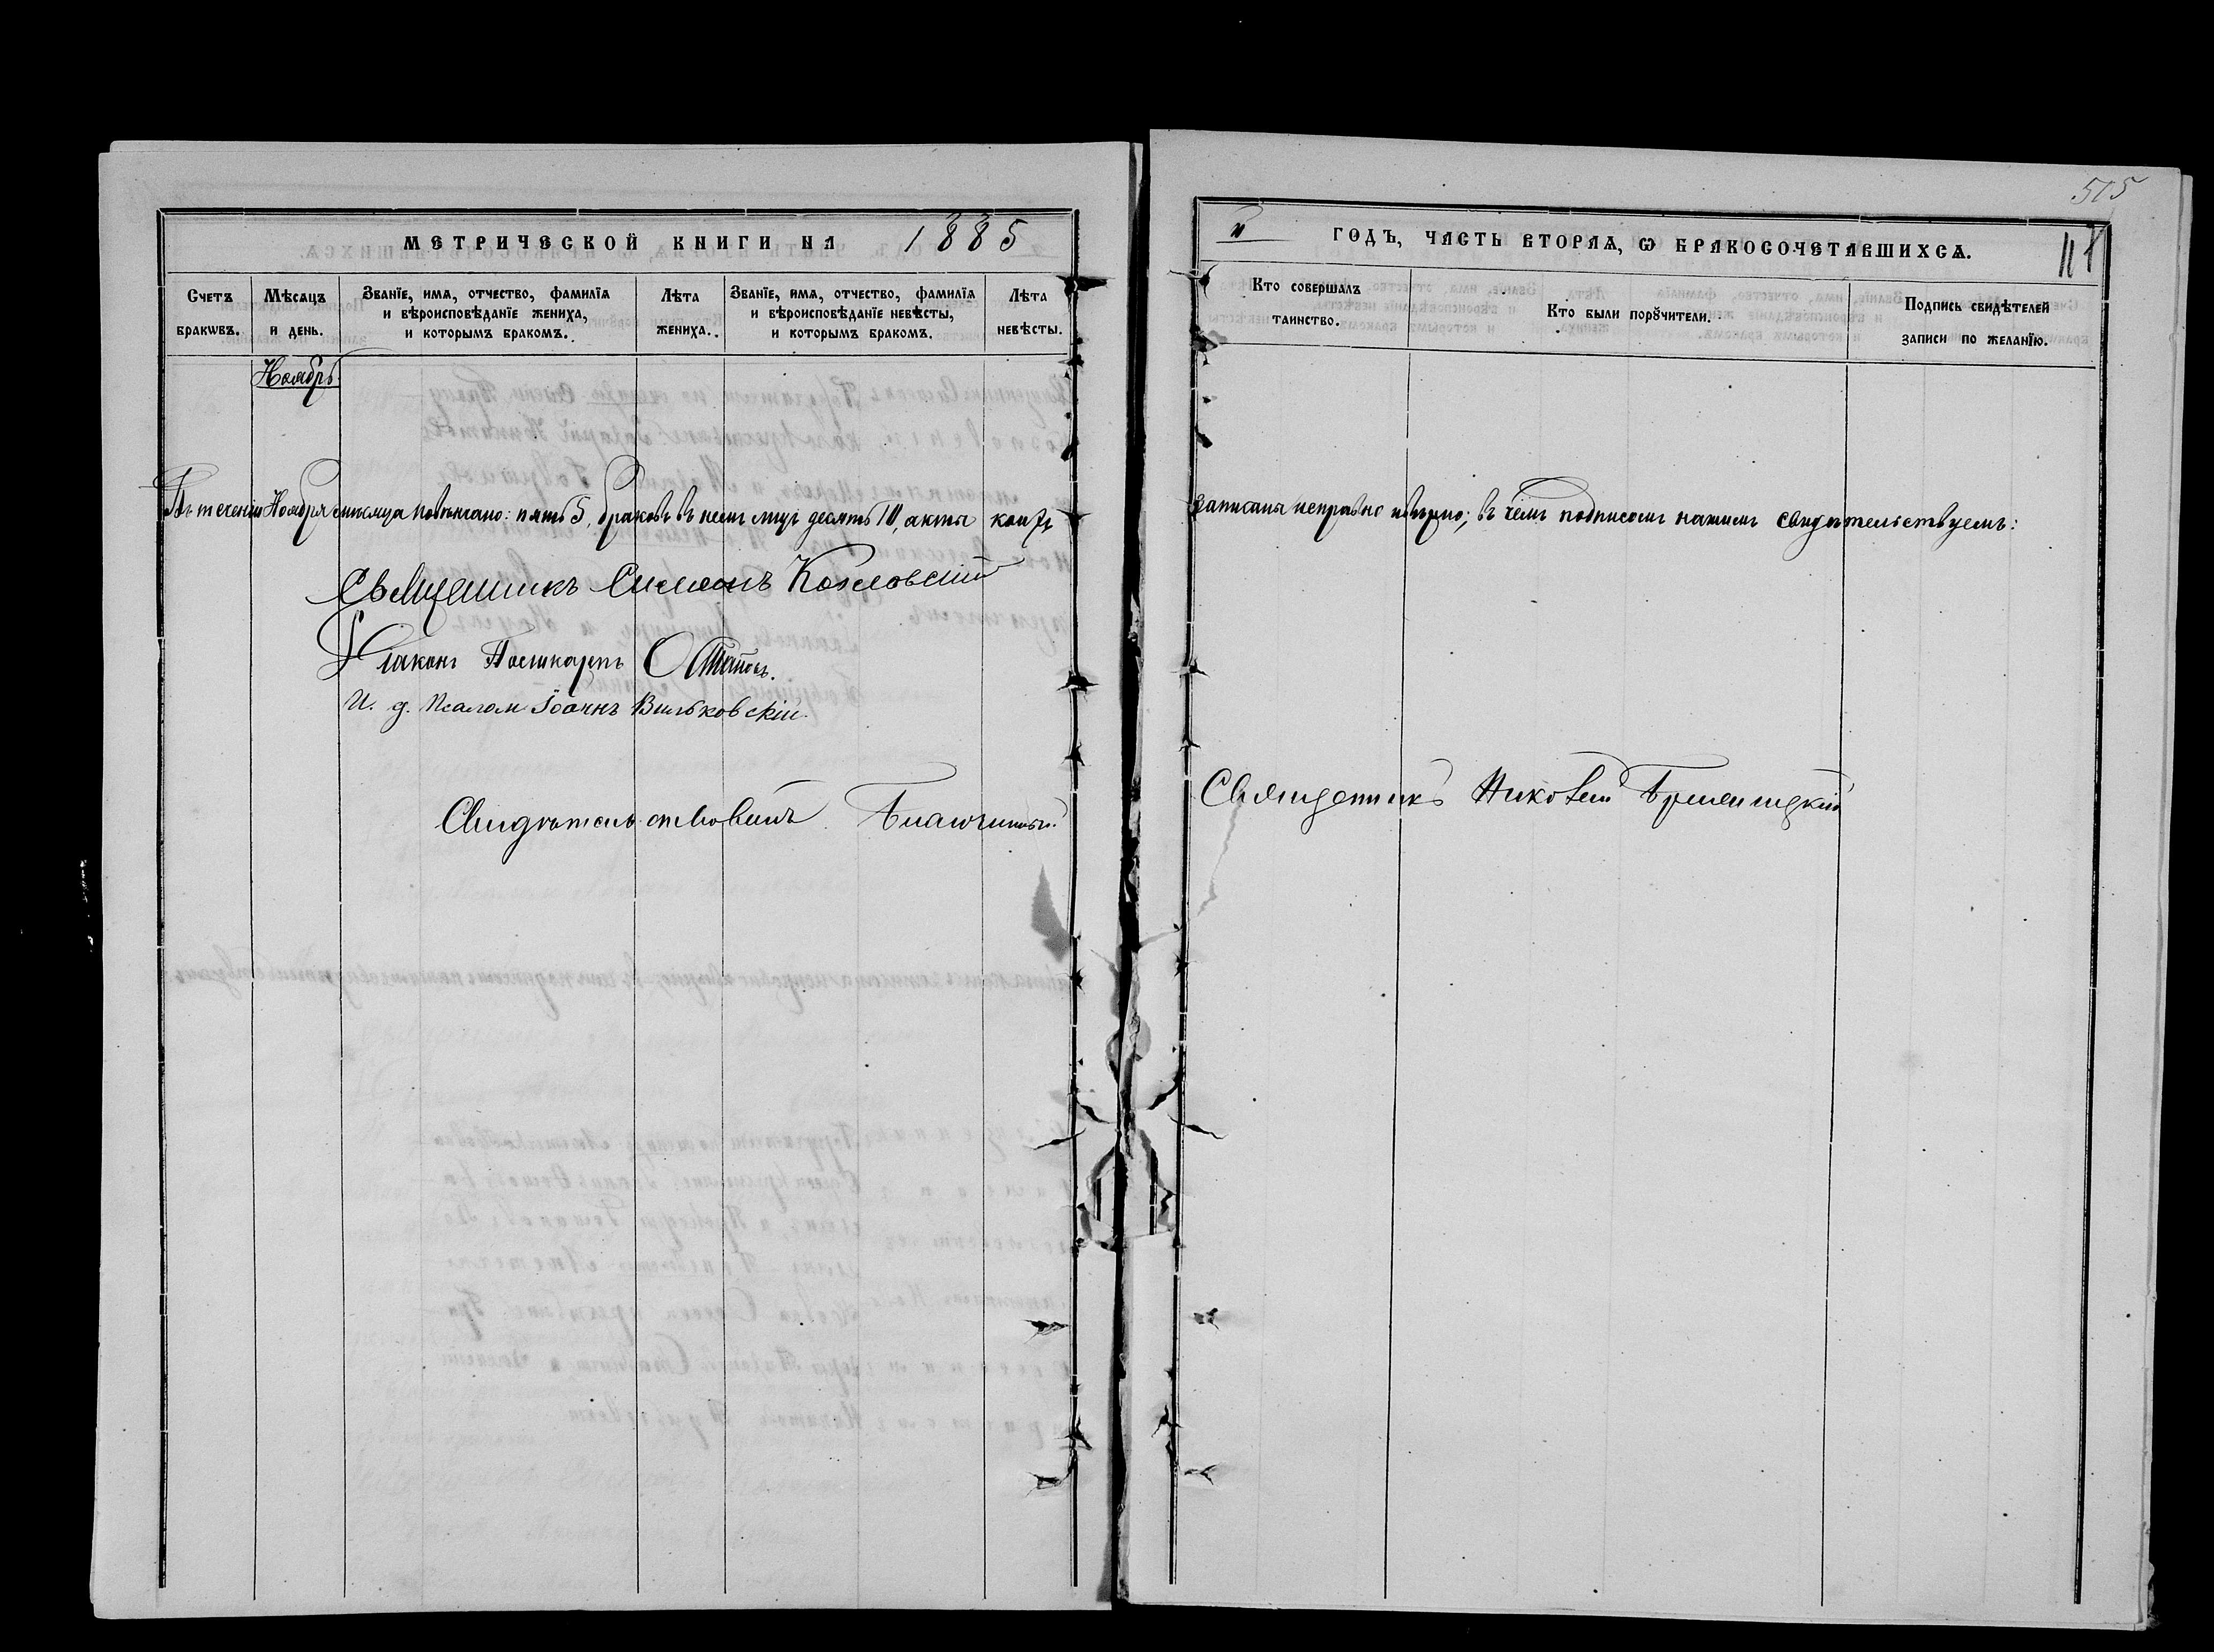 515
МЕТРИЧЕСКОЙ КНИГИ НА 1885
й ГОДЪ, ЧАСТЬ ВТОРАѦ, Ѡ БРАКОСОЧЕТАВШИХСѦ.
Счетъ бракѡвъ.
Мѣсѧцъ и день.
Званїе, имѧ, отчество, фамилїѧ
и вѣроисповѣданїе жениха,
и которымъ бракомъ.
Лѣта жениха.
Званїе, имѧ, отчество, фамилїѧ
и вѣроисповѣданїе невѣсты,
и которымъ бракомъ.
Лѣта невѣсты.
Кто совершалъ таинство.
Кто были порꙋчители.
Подпись свидѣтелей
записи по желанїю.
Ноябрь
Въ теченіи Ноября мѣсяца повѣнчано: пять 5, браковъ въ нихъ лицъ десять 10, акты коихъ
записаны исправно и вѣрно; въ чемъ подписомъ нашимъ свидѣтельствуемъ:
Священникъ Симеонъ Козловскій
Діаконъ Поликарпъ
И. д. Псалом Іоаннъ Вильковскій.
Свидѣтельствовалъ Благочинный
Священникъ